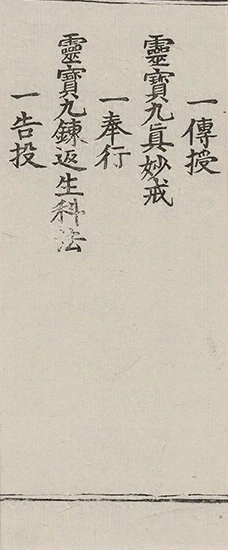 一傳授
靈寶九眞妙戒
一奉行
靈寶九鍊返生科法
一告投